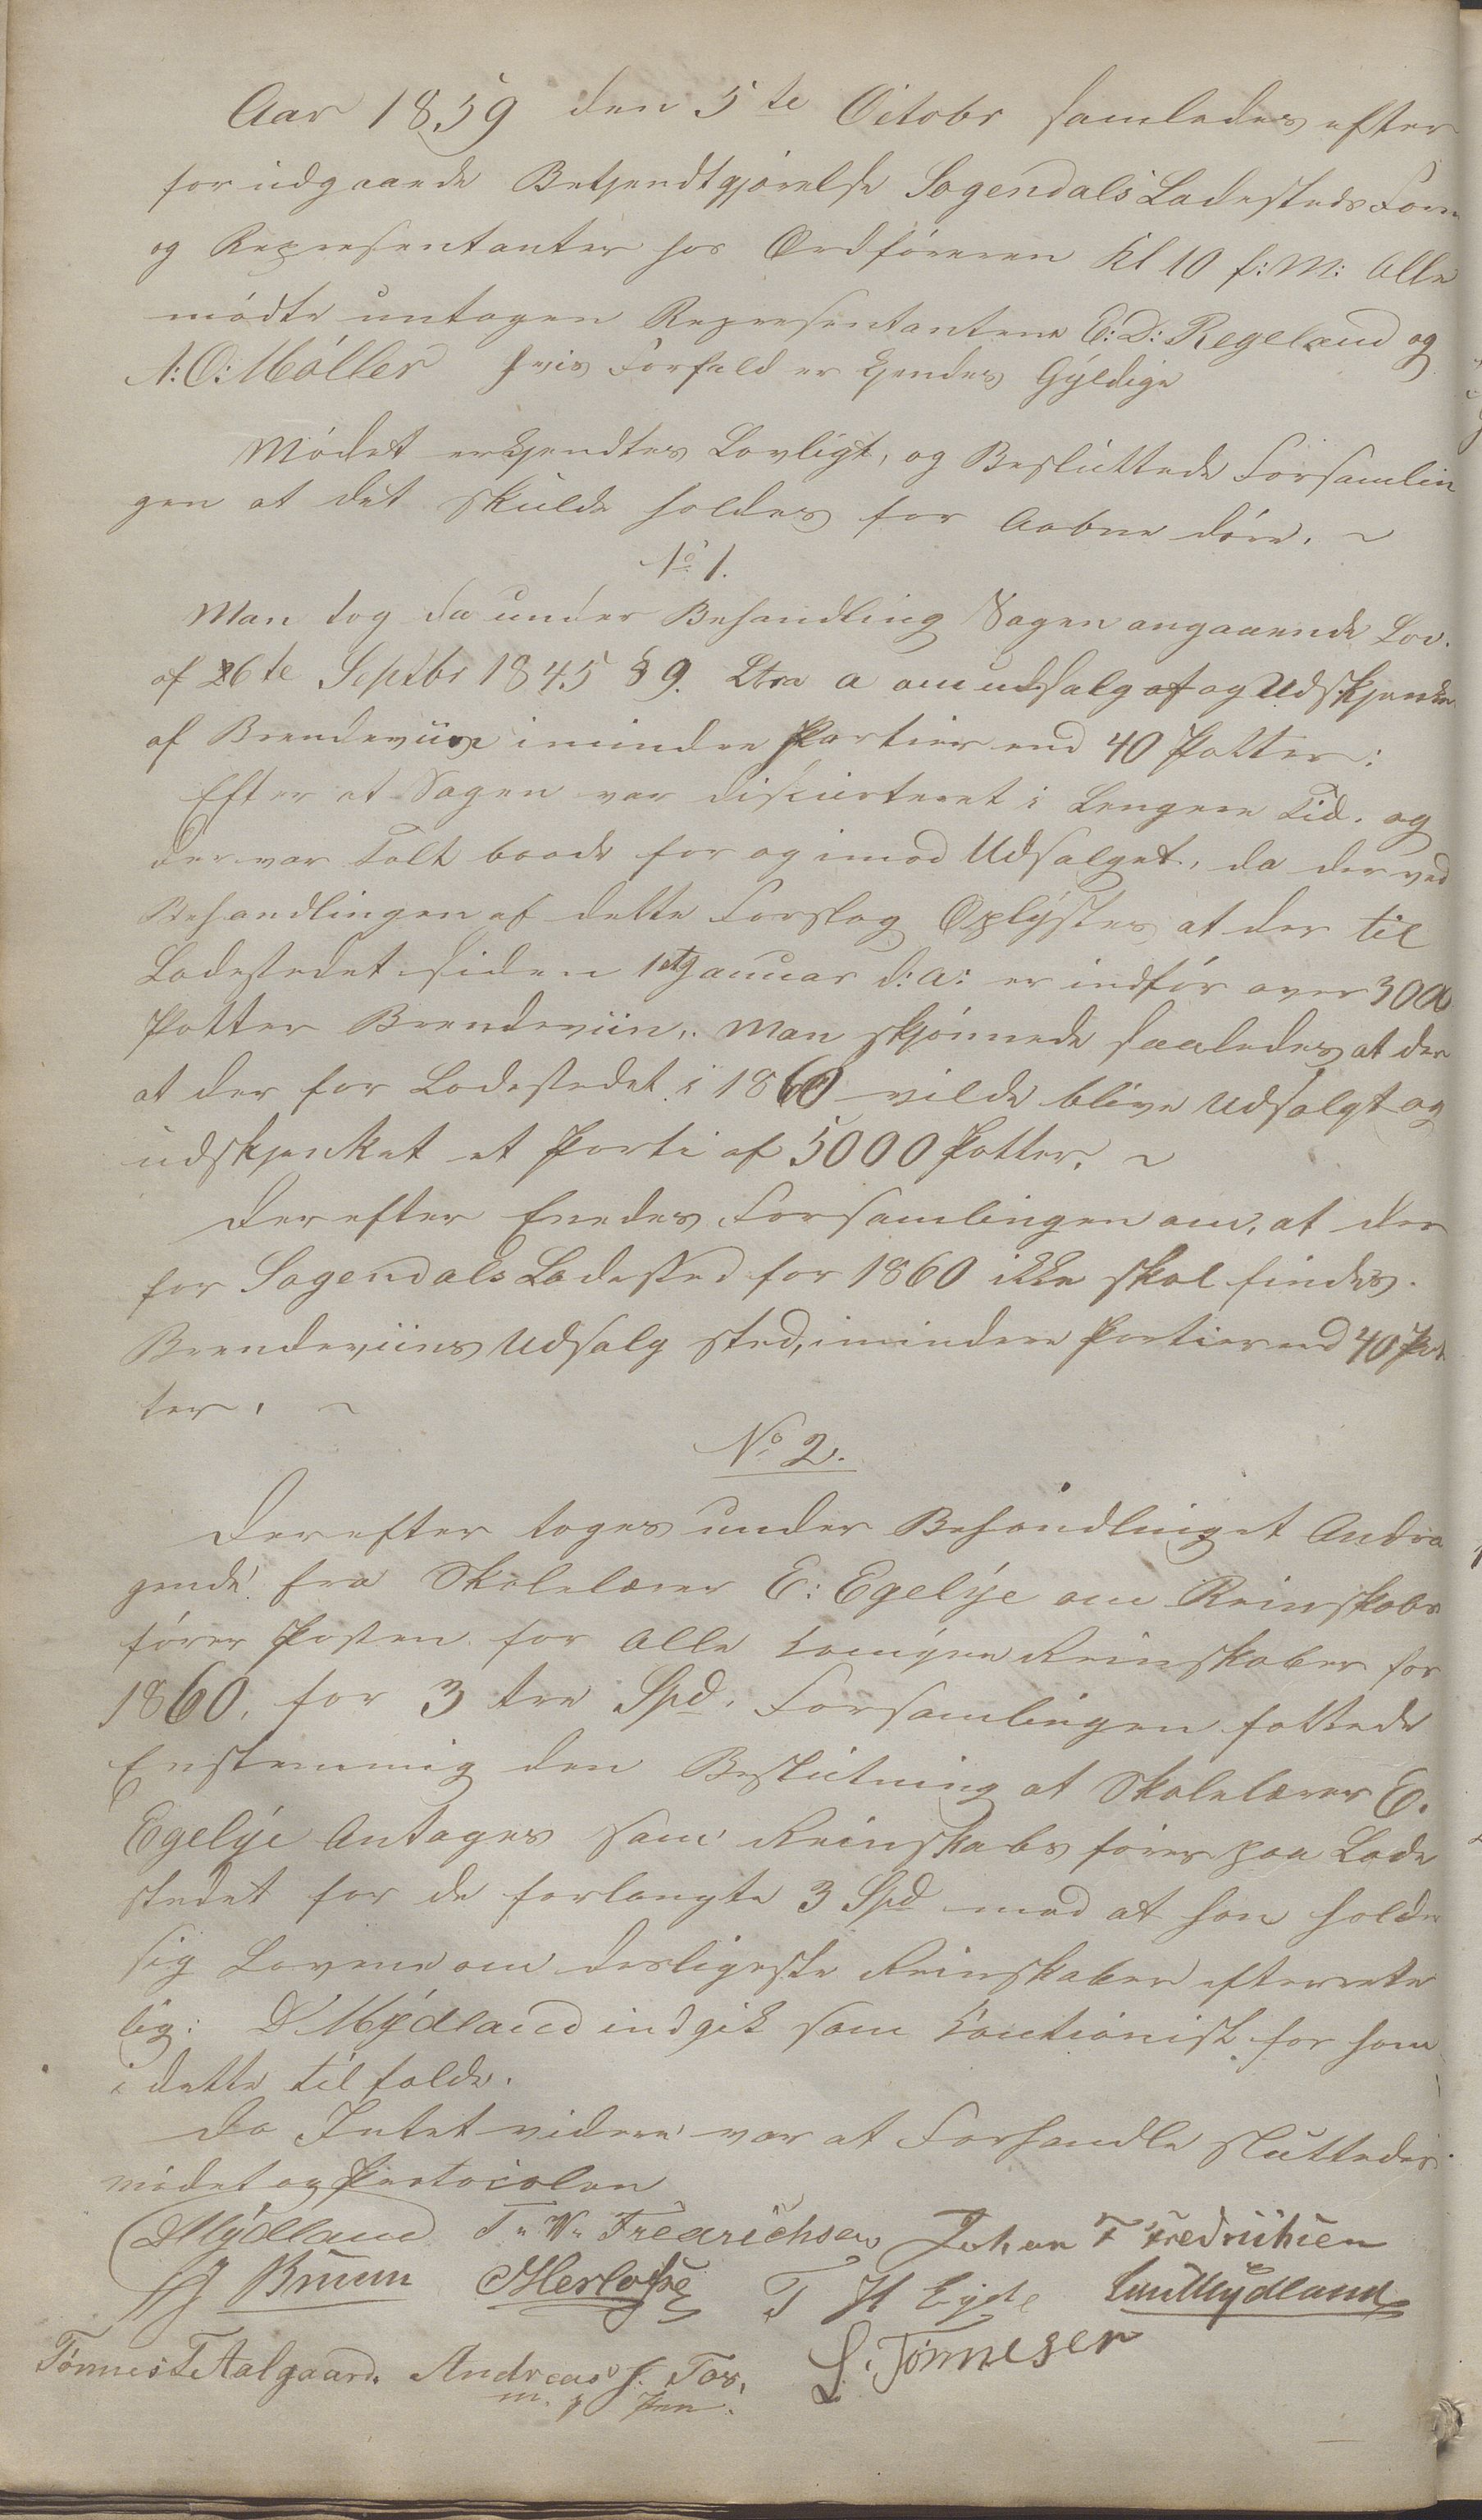 Aar 1859 den 5te Octobr samledes efter
forudgaaende Bekjendtgjørelse Sogendals Ladesteds Form
og Repræsentanter hos Ordføreren Kl 10 f:M: Alle
mødte untagen Representanterne E: D: Regeland og
N: O: Møller hvis Forfald er kjendes Gyldige
Mødet erkjendtes Lovligt, og Besluttede Forsamlin
gen at det skulde holdes for Aabne døre. ~
No 1.
Man tog da under Behandling Sagen angaaende Lov.
af 26te Septbr 1845 § 9. Ltra a om udsalg af og Udskjenke
af Brendeviin i mindre Partier end 40 Potter:
Efter at Sagen var discurteret i Lengere Tid. og
der var Talt baade for og imod Udsalget, da der ved
Behandlingen af dette Forslag Oplystes at der til
Ladestedet siden 1st Januar d: A: er indfør over 3000
Potter Brendeviin,. Man skjønnede saaledes at der
at der for Ladestedet i 1860 vilde blive Udsalgt og
udskjenket et Parti af 5000 Potter. ~
Derefter Enedes Forsamlingen om, at der
for Sogendals Ladested for 1860 ikke skal findes.
Brendeviins Udsalg sted, i mindere Partier end 40 Pot
ter. ~
No 2.
Derefter toges under Behandling et Andra
gende fra Skolelærer E: Egelye om Reinskabs
fører Posten for Alle Comyne Reinskaber for
1860, for 3 tre Spd. Forsamlingen fattede
Enstemmig den Beslutning at Skolelærer E.
Egelye Antages som Reinskabs fører paa Lade
stedet for de forlangte 3 Spd mod at han holder
sig Lovene om desligeste Reinskaber efterrete
lig: D Mydland indgik som Cautionist for ham
i dette tilfælde.
Da Intet videre var at Forhandle sluttedes
mødet og Protocolen
DMydland T. W. Fredrichsen Johan F Fredrichsen
Bruun T H Egde Mydland
Tønnes T Aalgaard. Andreas J. Tos. S. Tønnesen
m. p Pen.